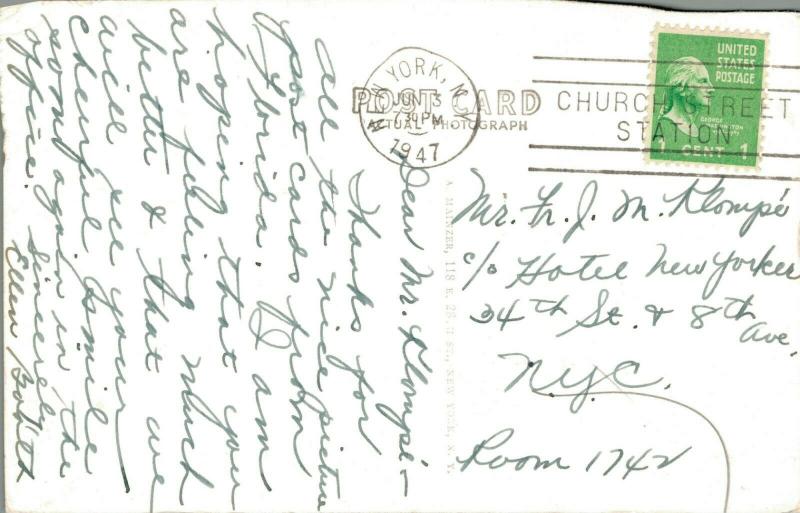 NEW YORK, N.Y.
JUN 3
730 PM
1947
CHURCH STREET
STATION
UNITED
STATES
POSTAGE
GEORGE
WASHINGTON
1 CENT 1
POST CARD
ACTUAL PHOTOGRAPH
A. MAINZER, 118 E. 28TH ST., NEW YORK, N. Y.
Dear Mr. Klompé –
Thanks for
all the nice picture
post cards from
Florida. I am
hoping that you
are feeling much
better & that we
will see your
cheerful smile
soon again in the
office.
Sincerely
Ellen
Mr. Fr. J. M. Klompé
c/o Hotel New Yorker
34th St. & 8th Ave.
N.Y.C.
Room 1742